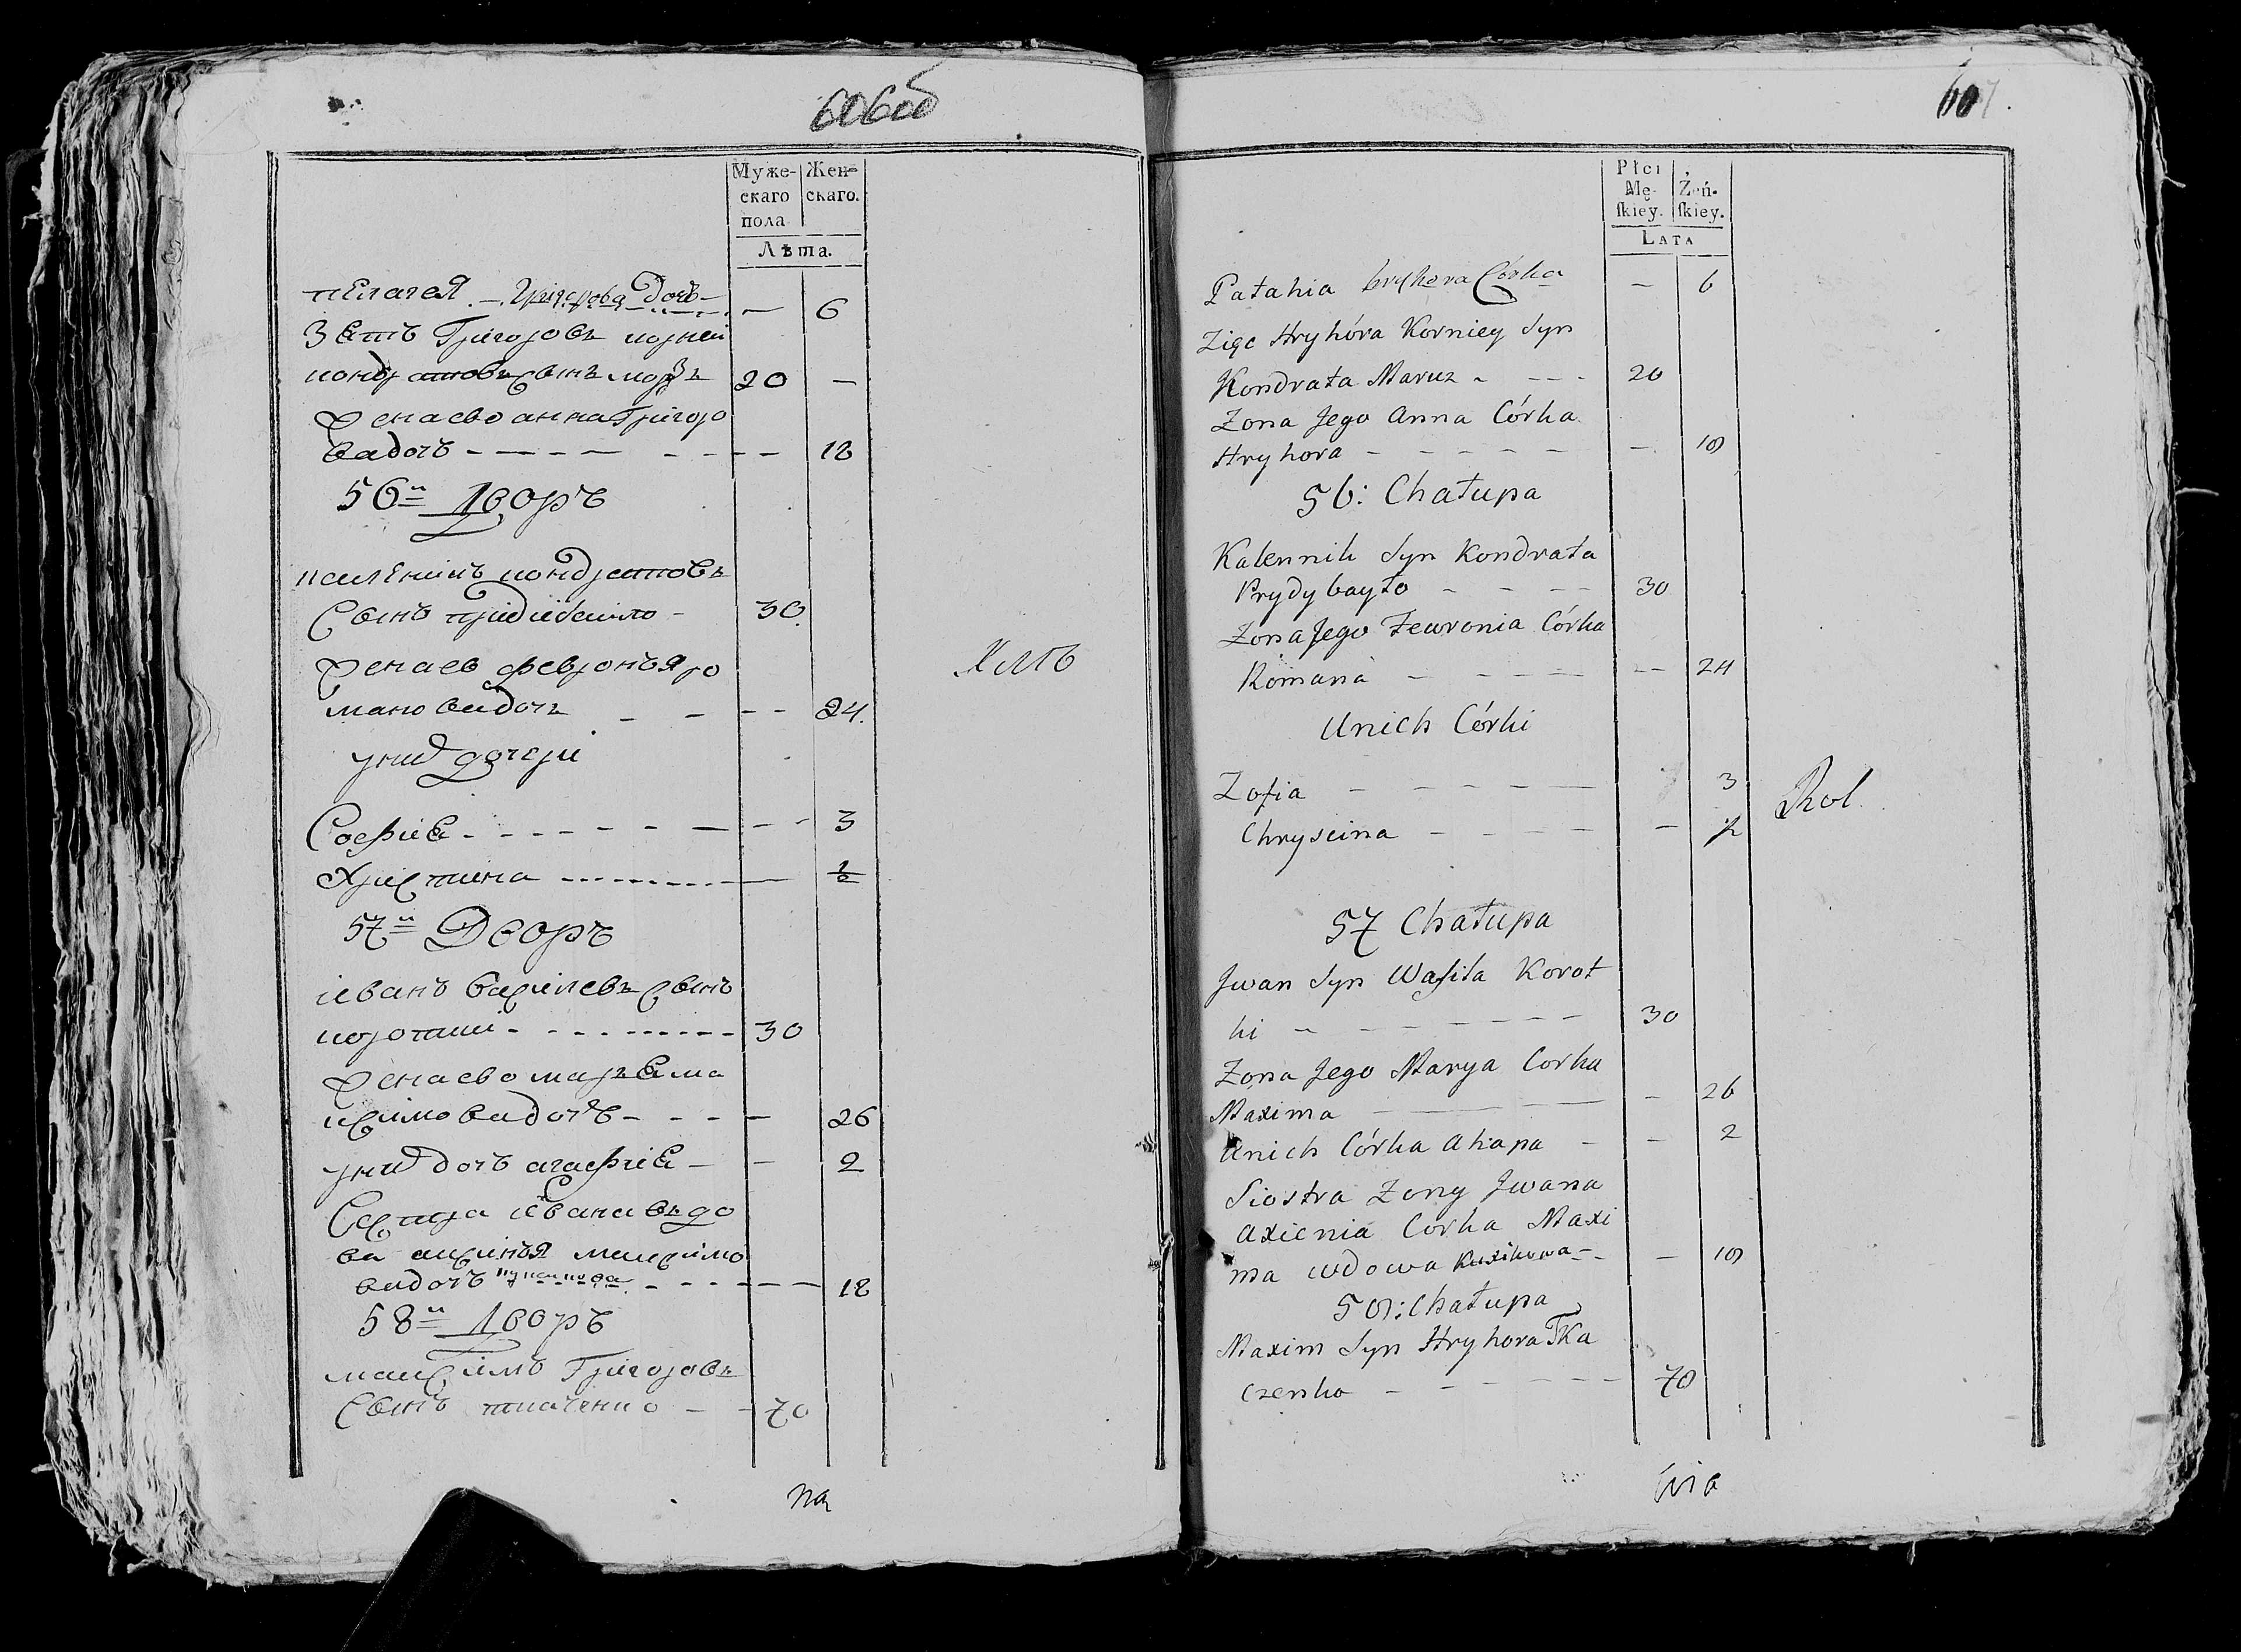 606об
Муже-
скаго
пола
Жен-
скаго.
Лѣта.
пелагея — Григорова дочь — — 6
Зять Григоровъ корней
кондратовъ сынъ морзъ 20 —
жена ево анна Григоро
ва дочь — — — — 18
56й Дворъ
каленикъ кондратовъ
сынъ придибайло — 30.
жена ев февронъя ро
мано ва дочь — — — 24.
у них дочери
София — — — — 3
Христина — — — ½
57й Дворъ
иванъ василевъ сынъ
короткий — — — 30
жена ево маръя ма
ксимова дочъ — — — 26
у них дочъ агафия — — 2
Сестра ивана вдо
ва аксинъя максимо
ва дочъ — — — 18
58й Дворъ
максимъ Григоровъ
сынъ ткаченко — — 70
на
607.
Płci
Mę-
skiey.
Żeń-
skiey.
Lata
Pałahia hryhora Córka — 6
Zięc Hryhóra Korniey Syn
Kondrata Maruz - — 20
Zona Jego Anna Córka
Hryhora — — — — 18
56: Chałupa
Kalennik Syn Kondrata
Prydybayło — — — 30
Zona Jego Fewronia Córka
Romana — — — — 24
Unich Córki
Zofia — — — — 3
Chryscina — — — — ½
Rol
57 Chałupa
Jwan Syn Wasila Korot
ki — — — — 30
Zona Jego Marya Corka
Maxima — — — 26
Unich Córka Ahapa — — 2
Siostra Zony Jwana
Axienia Corka Maxi
ma wdowa — — 18
58: Chałupa
Maxim Syn Hryhora Tka
czenko — — — — 70